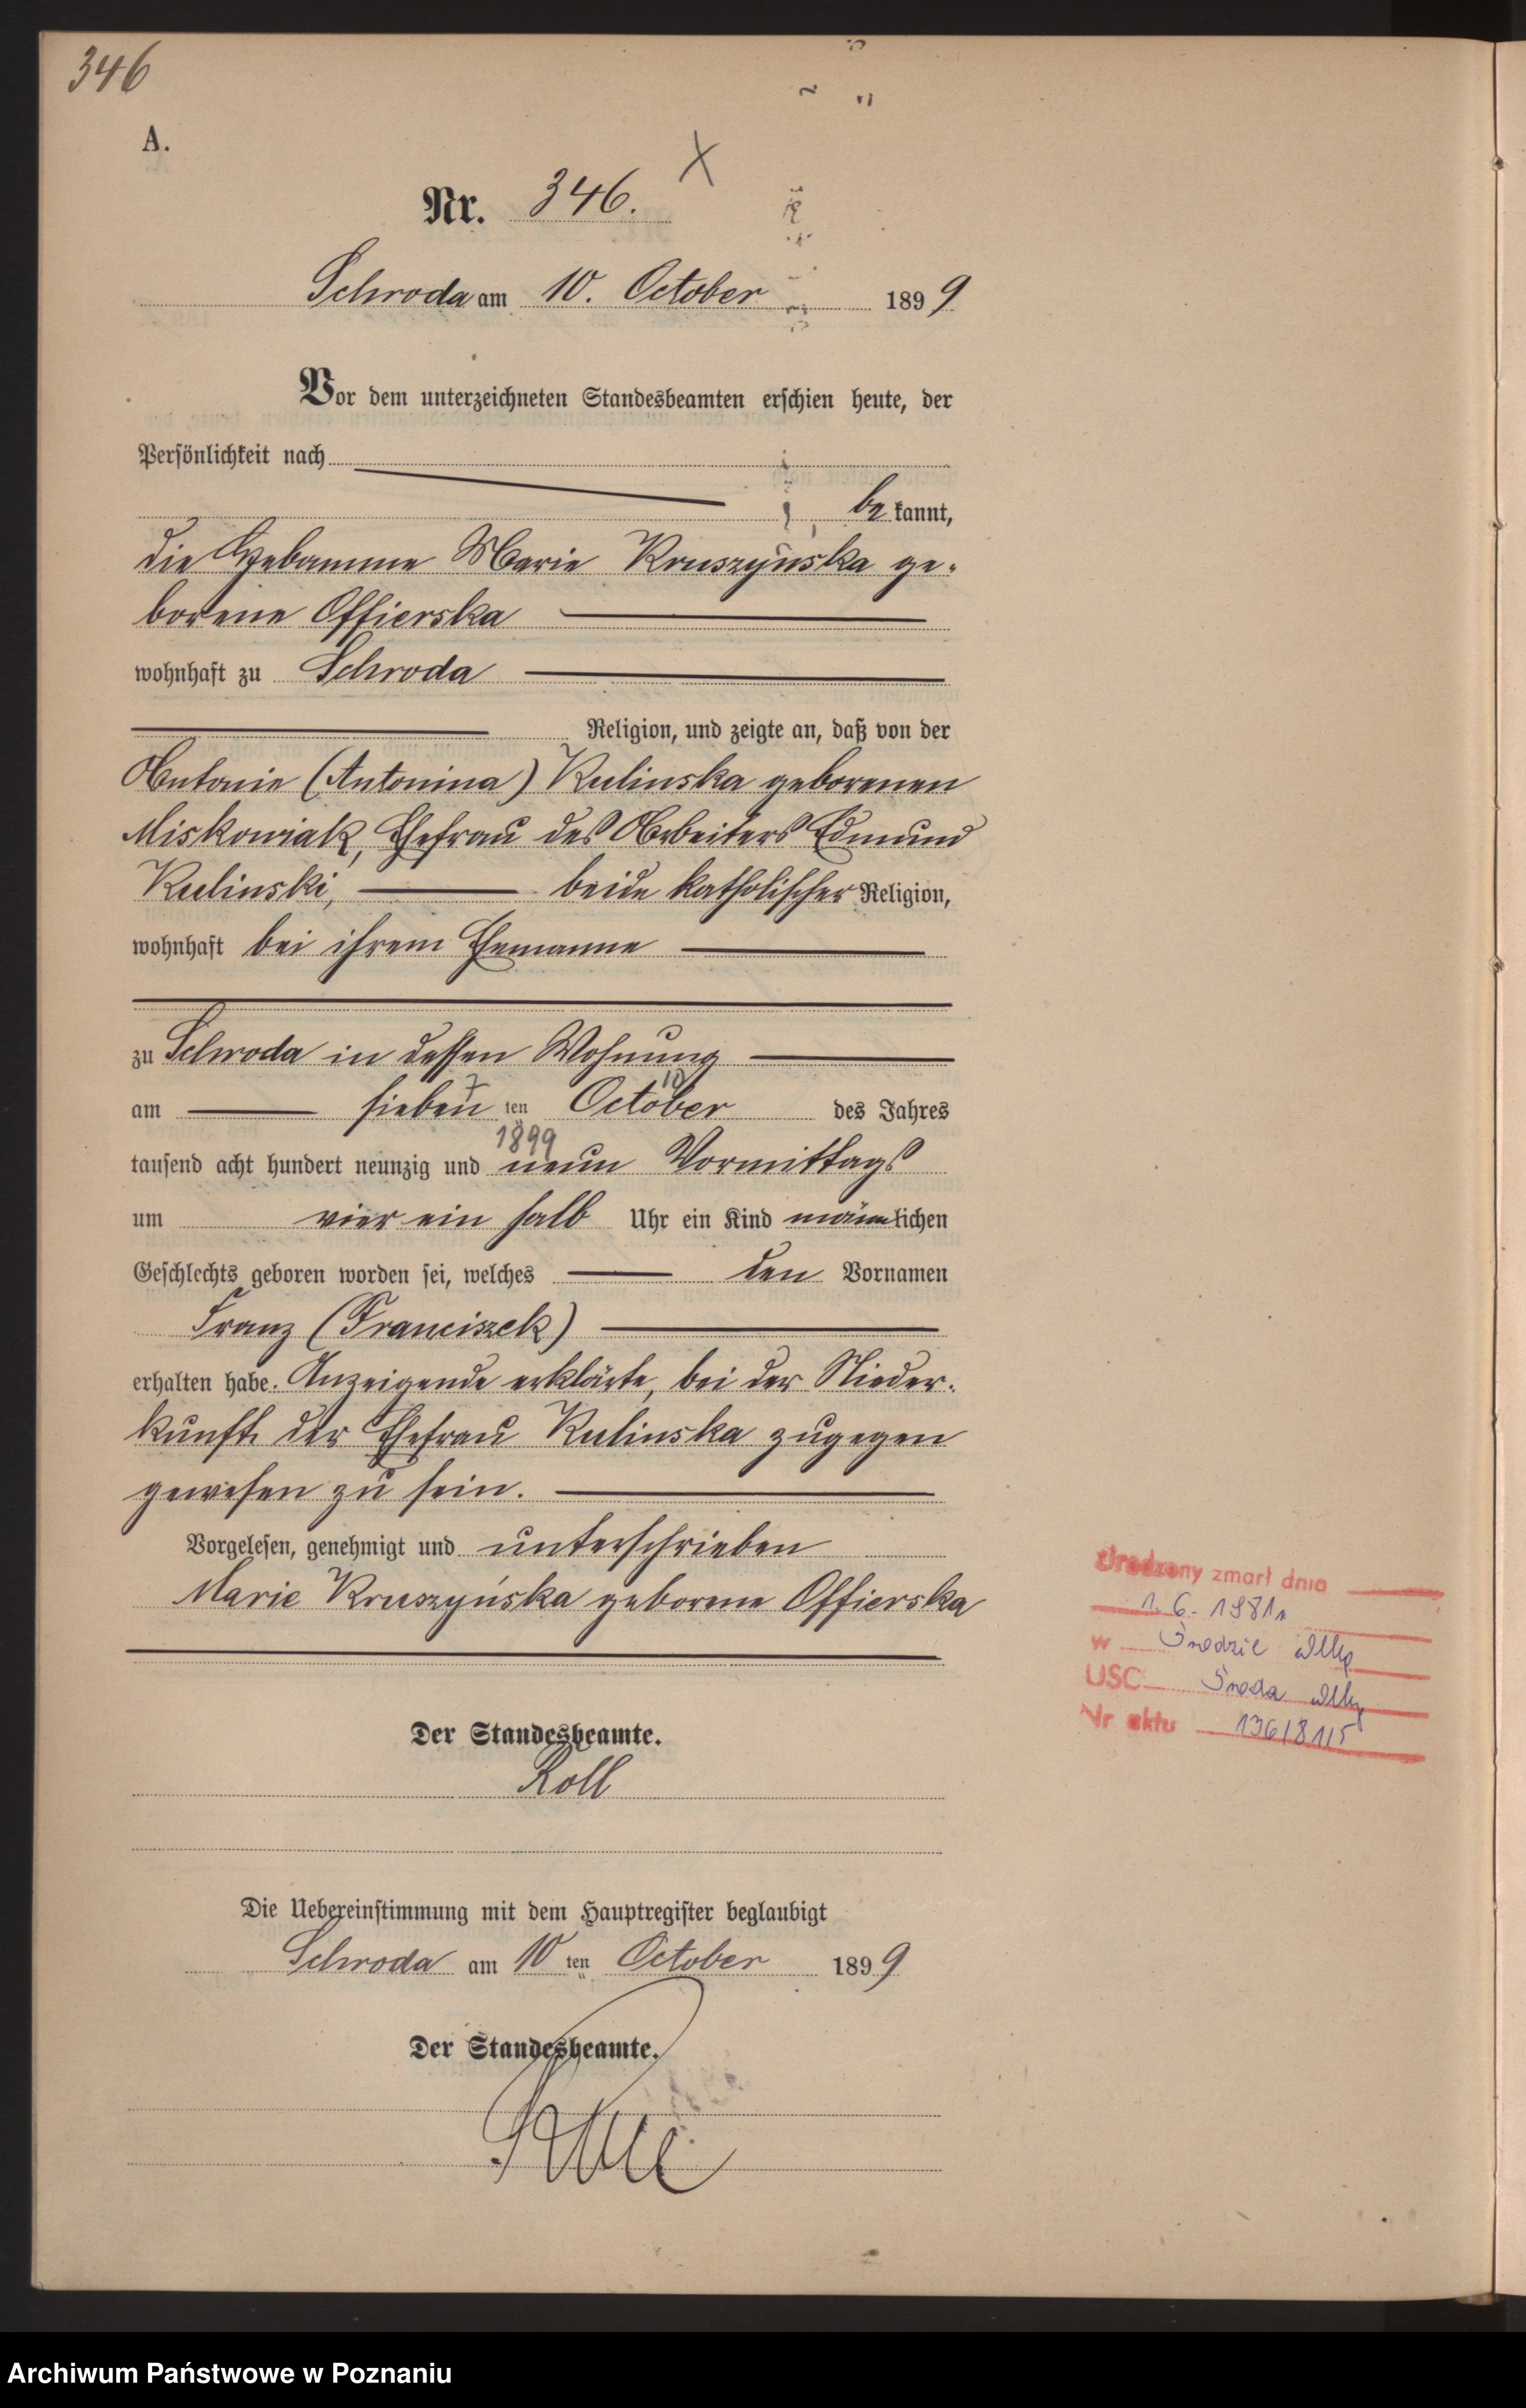 346
A.
Nr. 346.
Schroda am 10. October 1899
Vor dem unterzeichneten Standesbeamten erschien heute, der
Persönlichkeit nach
be kannt,
die Hebamme Marie Kruszyńska ge-
borene Offierska
wohnhaft zu Schroda
Religion, und zeigte an, daß von der
Antonie (Antonina) Kulinska geborenen
Miskowiak, Ehefrau des Arbeiters Edmund
Kulinski, beide katholischer Religion,
wohnhaft bei ihrem Ehemanne
zu Schroda in dessen Wohnung
am sieben ten October des Jahres
7 10
1899
tausend acht hundert neunzig und neun Vormittags
um vier ein halb Uhr ein Kind männlichen
Geschlechts geboren worden sei, welches den Vornamen
Franz (Franciszek)
erhalten habe. Anzeigende erklärte, bei der Nieder-
kunft der Ehefrau Kulinska zugegen
gewesen zu sein.
Vorgelesen, genehmigt und unterschrieben
Marie Kruszyńska geborene Offierska
Der Standesbeamte.
Roll
Die Uebereinstimmung mit dem Hauptregister beglaubigt
Schroda am 10 ten October 1899
Der Standesbeamte.
Urodzony zmarł dnia
1. 6. 1981r
w Środzie Wlkp
USC Środa Wlkp
Nr aktu 136/81/5
Archiwum Państwowe w Poznaniu